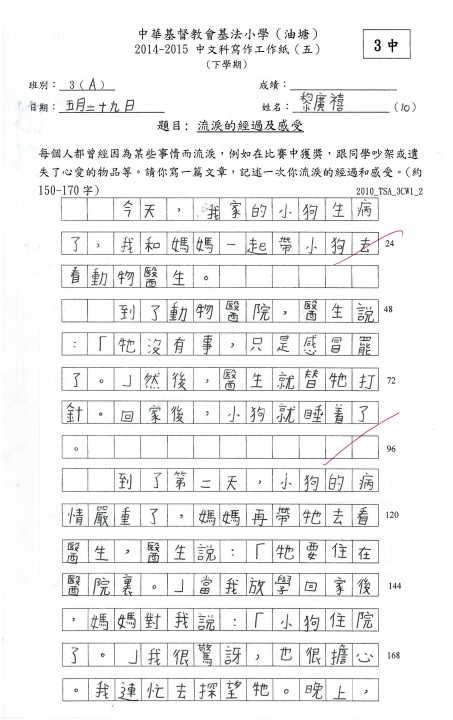 中華基督教會基法小學（油塘）
2014-2015 中文科寫作工作紙（五）
（下學期）
3中
班別： 3(A) 成績：
日期： 五月二十九日 姓名： 黎廣禧 (10)
題目： 流淚的經過及感受
每個人都曾經因為某些事情而流淚，例如在比賽中獲獎，跟同學吵架或遺
失了心愛的物品等。請你寫一篇文章，記述一次你流淚的經過和感受。（約
150-170字） 2010_TSA_3CW1_2
今天，我家的小狗生病
了，我和媽媽一起帶小狗去 24
看動物醫生。
到了動物醫院，醫生說 48
：「牠沒有事，只是感冒罷
了。」然後，醫生就替牠打 72
針。回家後，小狗就睡着了
。 96
到了第二天，小狗的病
情嚴重了，媽媽再帶牠去看 120
醫生，醫生說：「牠要住在
醫院裏。」當我放學回家後 144
，媽媽對我說：「小狗住院
了。」我很驚訝，也很擔心 168
。我連忙去探望牠。晚上，